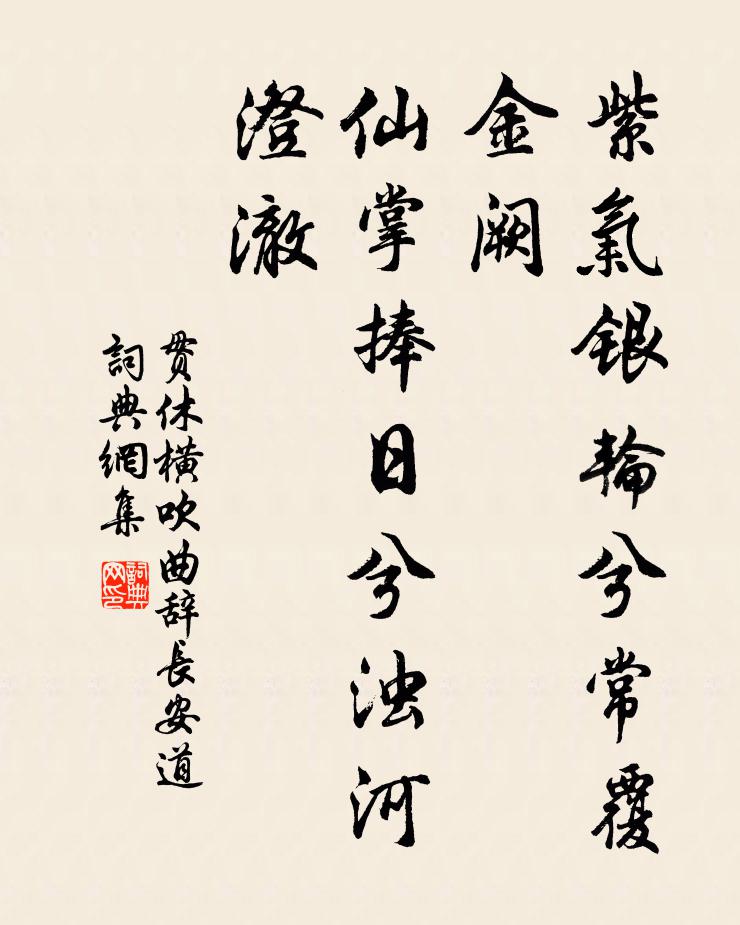 紫氣銀輪兮常覆
金阙
仙掌捧日兮浊河
澄澈
贯休横吹曲辞長安道
詞典網集
詞典网印